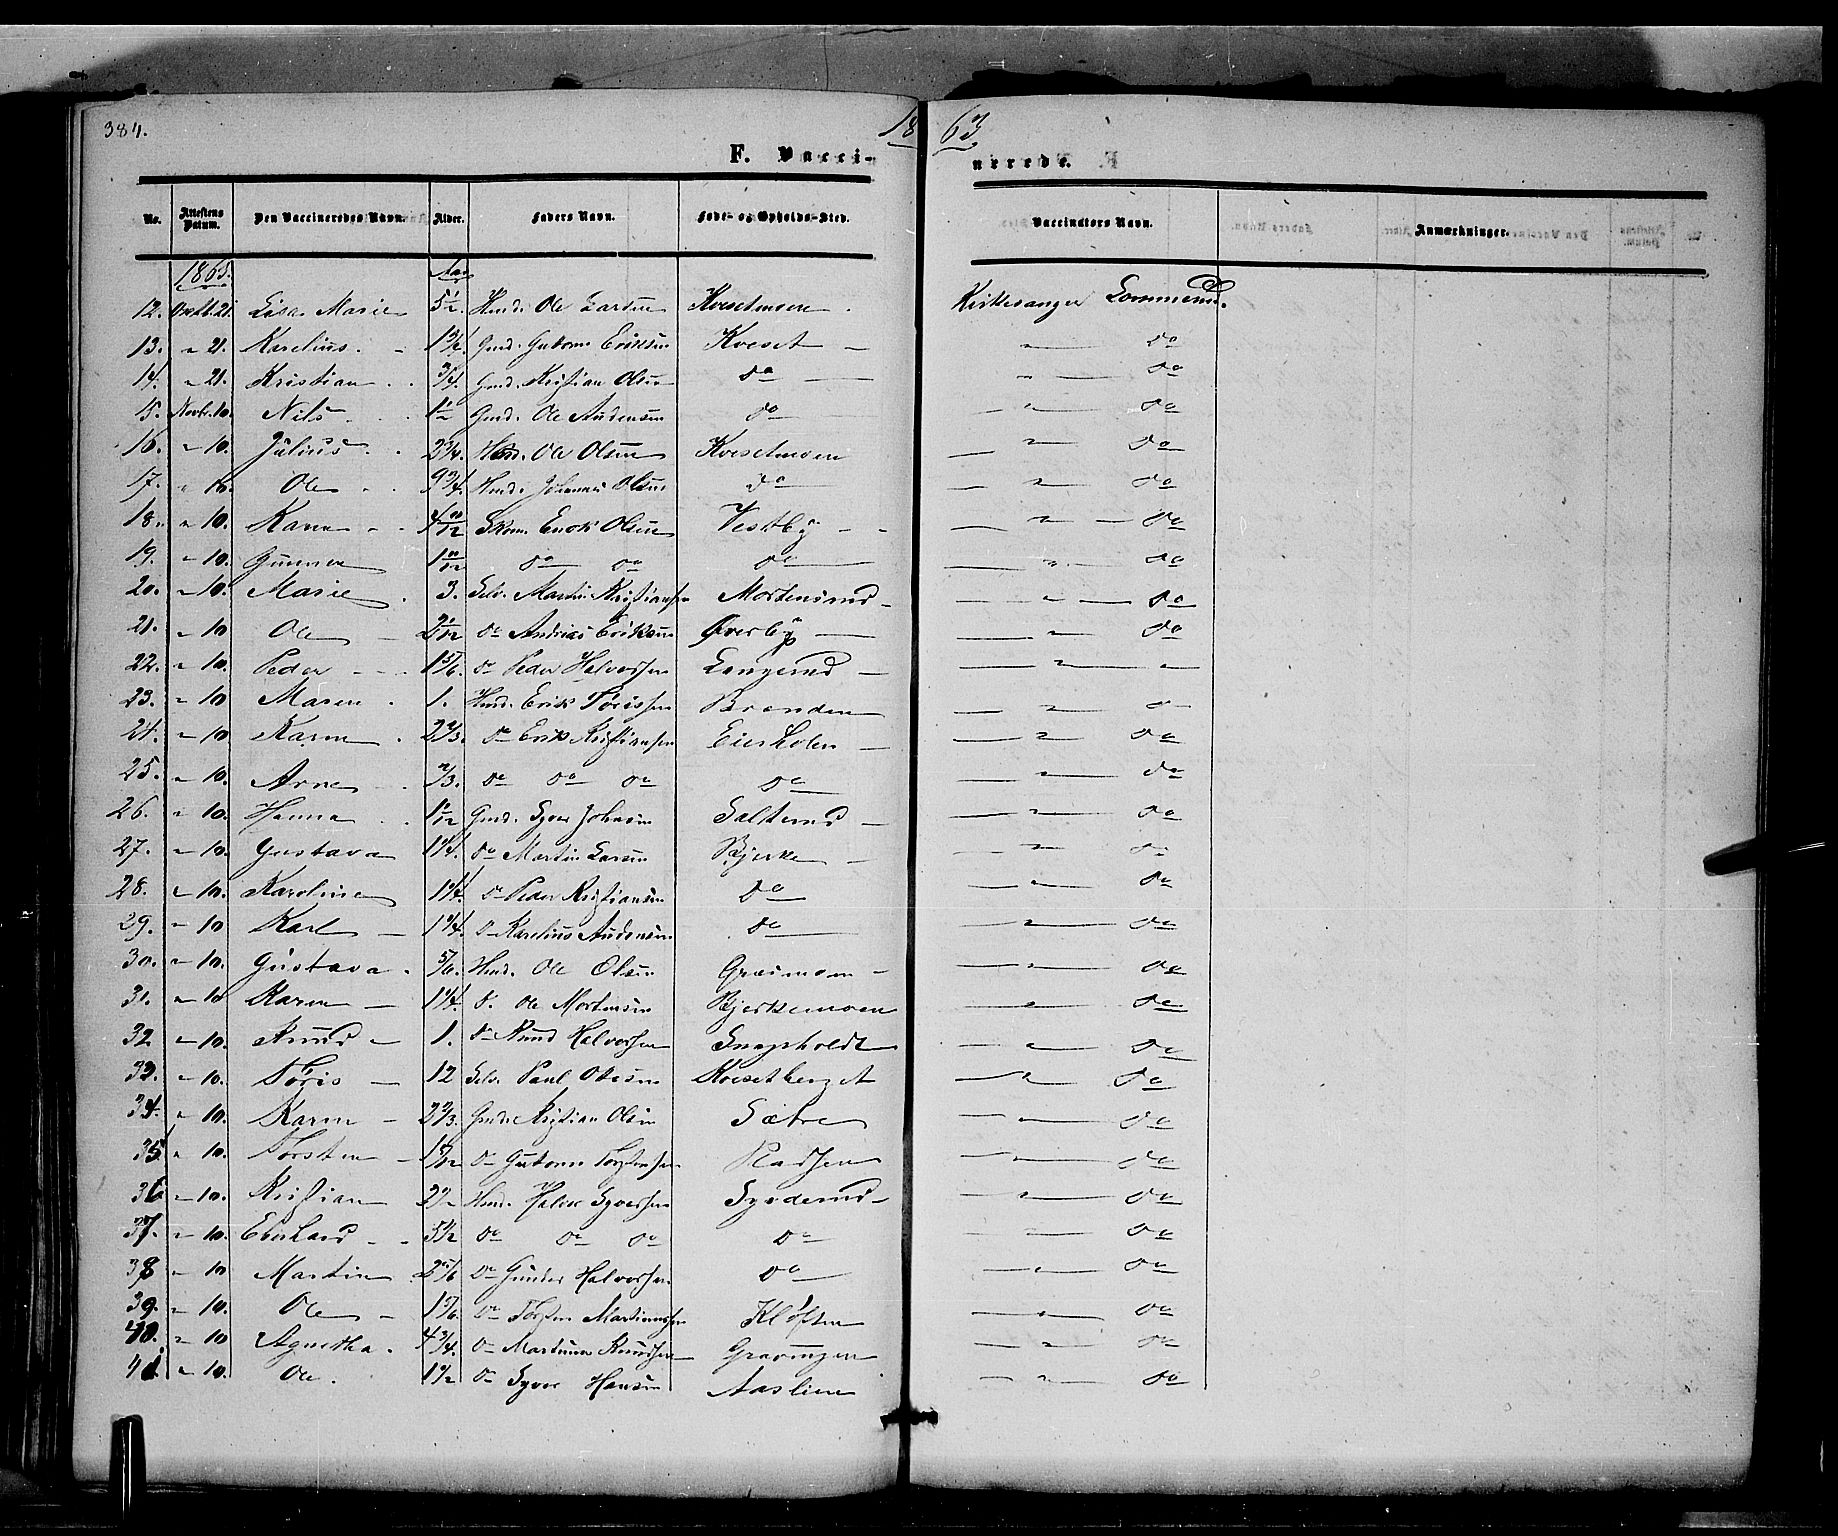 384.
18 63.
F. Vacci- nerede.
No. | Attestens Datum. | Den Vaccineredes Navn. | Alder. | Faders Navn. | Føde- og Opholds-Sted. | Vaccinators Navn. | Anmærkninger.
1863. Aar
12. Oktb. 21. Lisa Marie 5½ Hmd. Ole Larsen Kvesetmoen. Kirkesanger Lommerud.
13. " 21. Karelius. Gmd. Guttorm Eriksen Kveset — " — do
14. " 21. Kristian 3/4. Gmd. Kristian Olsen do — " — do
15. Novbr. 10. Nils 1½ Gmd. Ole Andersen do — " — do
16. " 10. Julius 2¾. Hmd. Ole Olsen Kvesetmoen — " — do
17. " 10. Ole 9¾. Hmd. Johannes Olsen do — " — do
18. " 10. Karen Skom. Enok Olsen Vestby — " — do
19. " 10. Gunner do do do — " — do
20. " 10. Marie 3. Selv. Martin Kristiansen Mortensrud — " — do
21. " 10 Ole 2 1/12 do Andreas Eriksen Øverby — " — do
22. " 10. Peder 1 5/6. do Peder Halvorsen Langerud — " —
23. " 10 Maren 1. Hmd. Erik Torissen Brenden — " — do
24. " 10 Karen 2 2/3. do Erik Kristiansen — " — do
25. " 10. Arne 2/3. do do do do — " — do
26. " 10. Hanna 1 1/12 Gmd. Syver Johnsen Salterud — " — do
27. " 10. Gustava 1¼. do Martin Larsen Bjerke — " — do
28. " 10. Karoline 1¼. do Peder Kristiansen do — " — do
29. " 10 Karl 1¼. do Karelius Andersen do — " — do
30. " 10. Gustava 5/6. Hmd. Ole Olsen Græsmoen — " — do
31. " 10 Karen 1¼. do Ole Mortensen Bjerkemoen — " — do
32 " 10. Knud 1. do Knud Halvorsen — " — do
33. " 10. Toris 12 Selv. Paul Olesen Kvesetberget — " — do
34. " 10. Karen 2 2/3. Gmd. Kristian Olsen Sætre — " — do
35. " 10. Torsten do Guttorm Torstensen — " — do
36 " 10. Kristian 2½ Hmd. Halvor Syversen Syverud — " — do
37. " 10. Eberhard 5½ do do do do — " — do
38 " 10 Martin 2 5/6 do Gunder Halvorsen do — " — do
39. " 10. Ole 1 5/6. do Torsten Martinussen Kløften — " — do
40. " 10 Agnetha. 4¾. do Martinus Knudsen — " — do
41. " 10. Ole. 1½ do Syver Hansen Aaslien — " — do